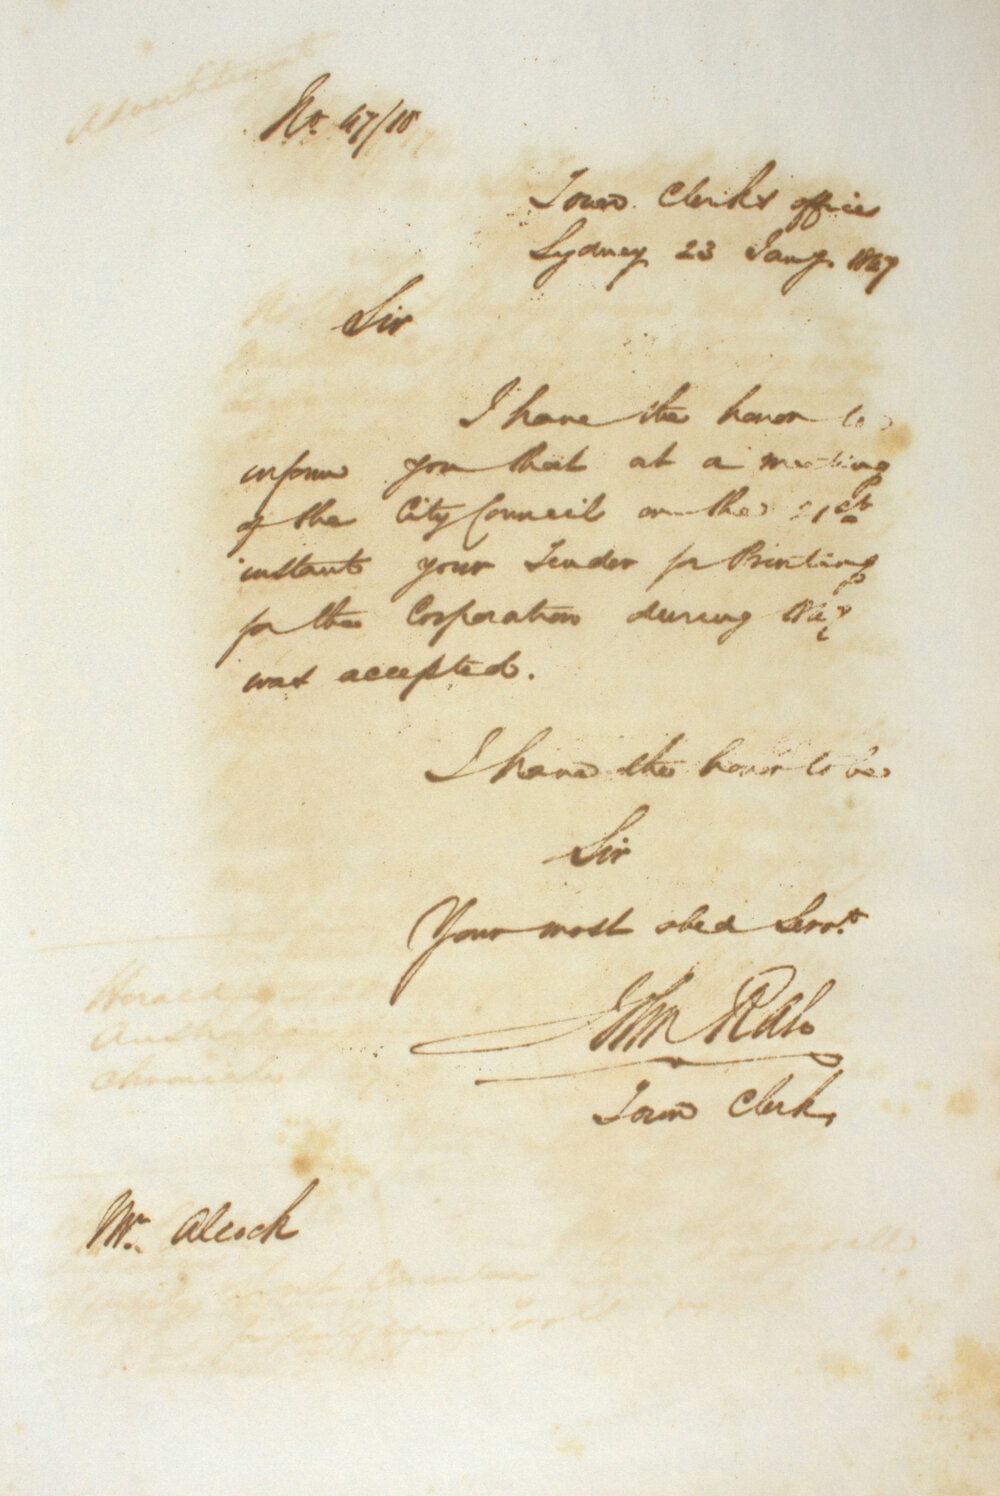 No. 47/18
Town Clerks office
Sydney 23 Jany. 1847
Sir
I have the honor to
inform you that at a meeting
of the City Council on the 21st
instant your Tender for Printing
for the Corporation during 1847
was accepted.
I have the honor to be
Sir
Your most obed Servt.
John Rae
Town Clerk,
Mr. Alcock
Herald
Australian
Chronicle